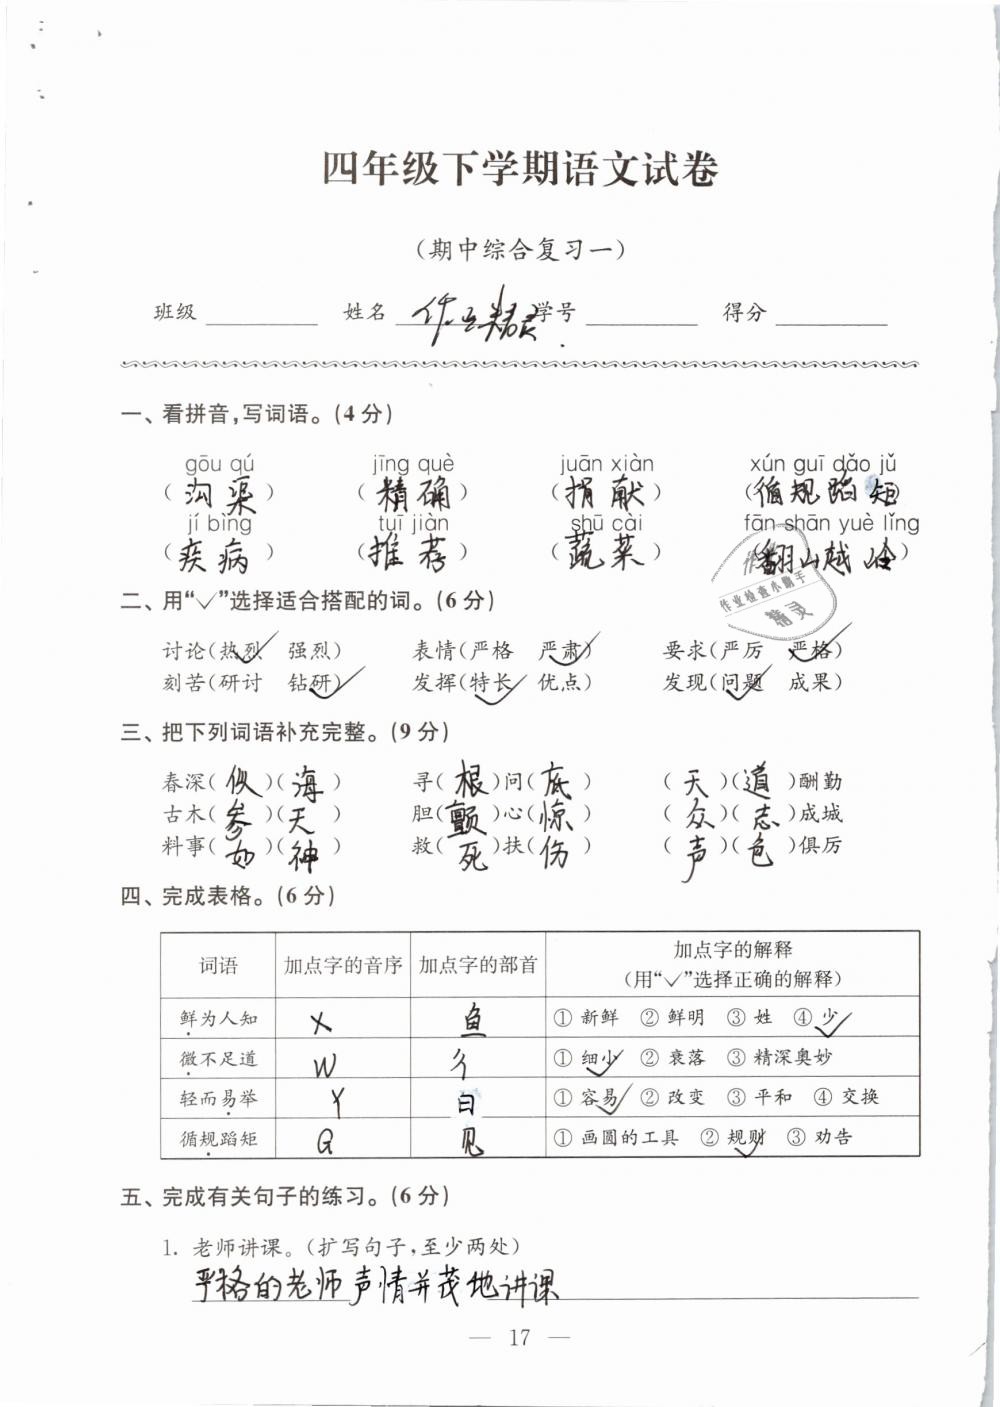 四年级下学期语文试卷
(期中综合复习一)
班级 姓名 作业精灵 学号 得分
一、看拼音,写词语。(4分)
gōu qú jīng què juān xiàn xún guī dǎo jǔ
(沟渠) (精确) (捐献) (循规蹈矩)
jí bìng tuī jiàn shū cài fān shān yuè lǐng
(疾病) (推荐) (蔬菜) (翻山越岭)
作业检查小助手
精灵
二、用“✓”选择适合搭配的词。(6分)
讨论(热烈✓ 强烈) 表情(严格 严肃✓) 要求(严厉 严格✓)
刻苦(研讨 钻研✓) 发挥(特长✓ 优点) 发现(问题✓ 成果)
三、把下列词语补充完整。(9分)
春深(似)(海) 寻(根)问(底) (天)(道)酬勤
古木(参)(天) 胆(颤)心(惊) (众)(志)成城
料事(如)(神) 救(死)扶(伤) (声)(色)俱厉
四、完成表格。(6分)
词语 加点字的音序 加点字的部首 加点字的解释
(用“✓”选择正确的解释)
鲜为人知 X 鱼 ① 新鲜 ② 鲜明 ③ 姓 ④ 少✓
微不足道 W 彳 ① 细小✓ ② 衰落 ③ 精深奥妙
轻而易举 Y 日 ① 容易✓ ② 改变 ③ 平和 ④ 交换
循规蹈矩 G 见 ① 画圆的工具 ② 规则✓ ③ 劝告
五、完成有关句子的练习。(6分)
1. 老师讲课。(扩写句子,至少两处)
严格的老师声情并茂地讲课
— 17 —